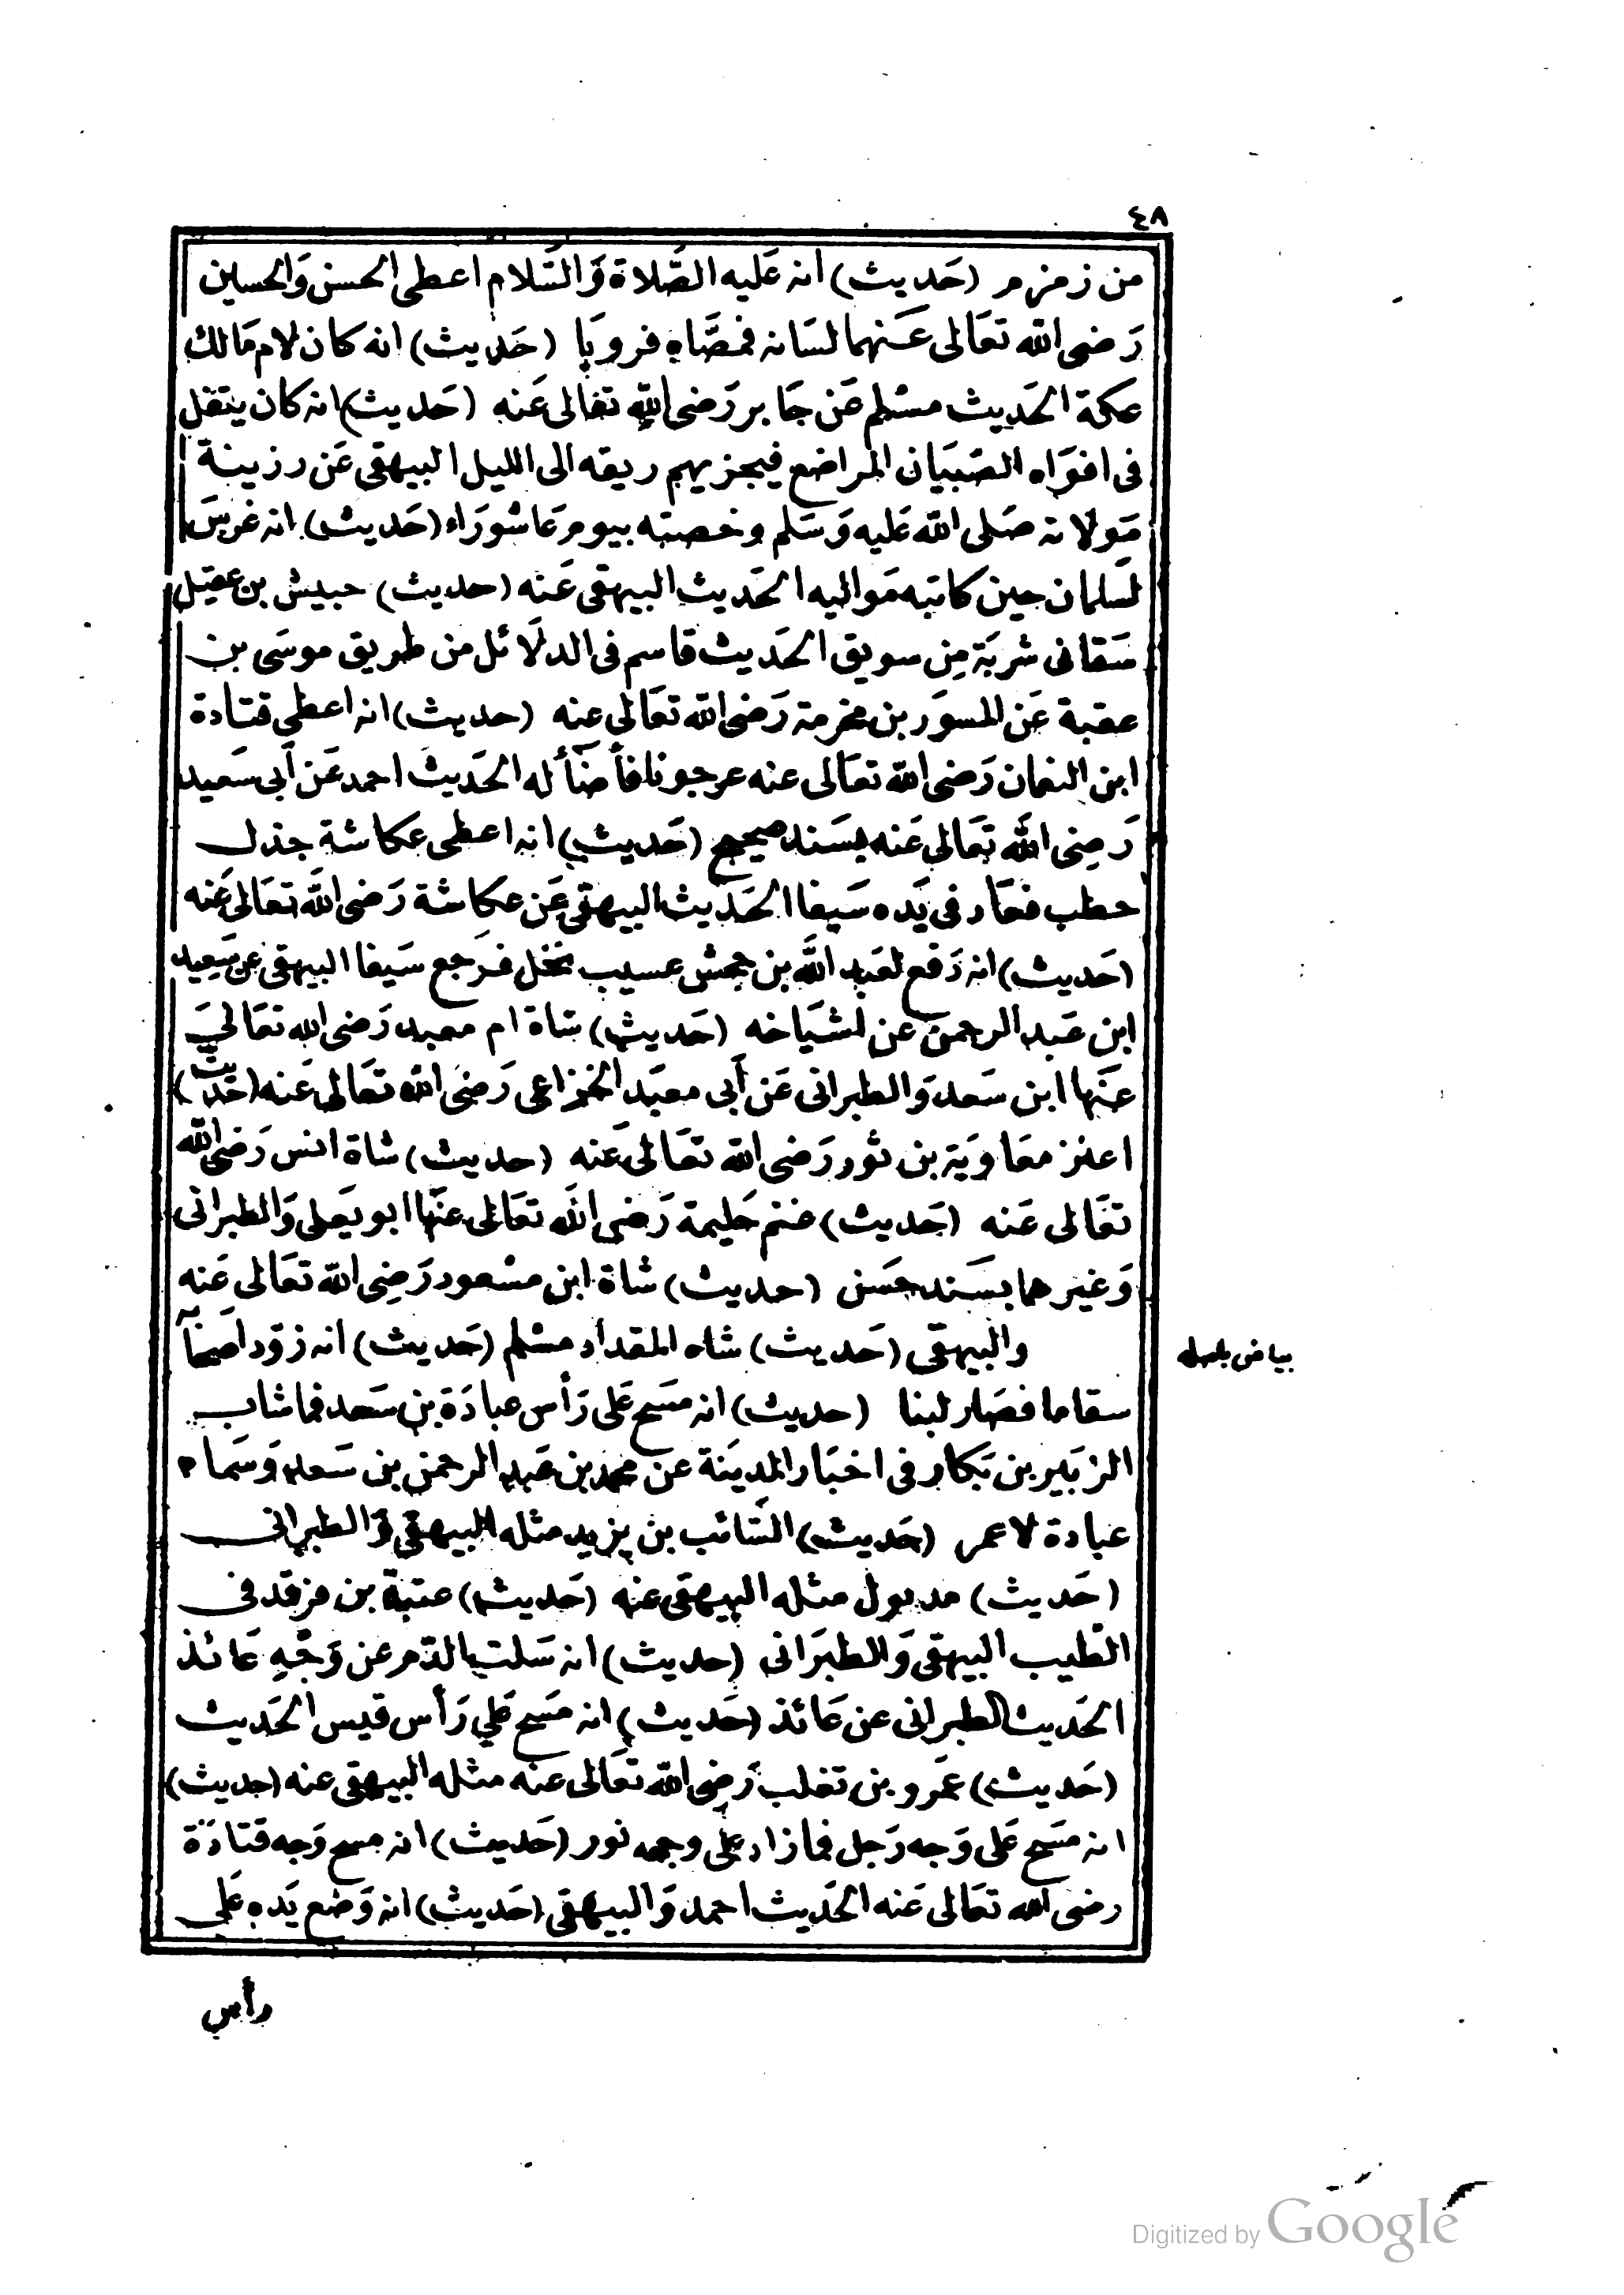 ٤٨
من زمزم (حَديث) انه عَليه الصَّلاة وَالسَّلام اعطى الحسن وَالحسين
رَضى الله تعَالى عَنهما لسَانه فمصَّاه فرويَا (حَديث) انه كان لام مَالك
عكة الحَديث مسْلم عَن جَابر رَضى الله تعَالى عَنه (حَديث) انه كان يتفل
فى افوَاه الصّبيَان المراضع فيجزيهم ريقه الى الليل البيهقى عَن رزينة
مَولاته صَلى الله عَليه وَسَلم وخصته بيوم عَاشورَاء (حَديث) انه غرسَ
لسَلمان حين كاتبه مَواليه الحَديث البيهقى عَنه (حديث) حبيش بن عقيل
سَقانى شربَة مِن سويق الحَديث قاسم فى الدلَائل من طريق موسَى بن
عقبة عَن المسوَر بن مخرمة رَضى الله تعَالى عنه (حديث) انه اعطى قتادة
ابن النعمان رَضى الله تعَالى عنه عرجونا فأضأ له الحَديث احمد عَن أبى سَعيد
رَضِى الله تعَالى عَنه بسَند صحيح (حَديث) انه اعطى عكاشة جذل
حطب فعَاد فى يَده سَيفا الحَديث البيهقى عَن عكاشة رَضى الله تعَالى عَنه
(حَديث) انه دَفع لعَبد الله بن جحش عسيب نخل فرَجع سَيفا البيهقى عن سَعِيد
ابن عَبد الرحمن عن اشيَاخه (حَديث) شاة ام معبد رَضى الله تعَالىَ
عَنهَا ابن سَعد وَالطبرانى عَن أبى معبَد الخزاعى رَضى الله تعَالى عَنه (حَديث)
اعنز معَاويَة بن ثور رَضى الله تعَالى عَنه (حديث) شاة انس رَضى الله
تعَالى عَنه (حَديث) غنم حَليمة رَضى الله تعَالى عنهَا ابو يَعلى وَالطبرانى
وَغيرهما بسَند حسَن (حديث) شاة ابن مسْعود رَضِى الله تعَالى عَنه
والبيهقى (حَديث) شاه المقداد مسْلم (حَديث) انه زوّد اصحَابه
بياض باصله
سقا ما فصَار لبنا (حديث) انه مسَح عَلى رَأس عبادَة بن سَعد فما شاب
الزبَير بن بَكار فى اخبَار المدينَة عَن محمد بن عَبد الرحمن بن سَعد وَسَماه
عبادة لا عمر (حَديث) السَّائب بن يزيد مثله البيهقى وَالطبرانى
(حَديث) مدلول مثله البيهقى عنه (حَديث) عتبة بن فرقد فى
الطيب البيهقى وَالطبرَانى (حديث) انه سَلت الدّم عن وَجْهِ عَائذ
الحَديث الطبرانى عن عَائذ (حَديث) انه مسَح عَلى رَأس قيس الحَديث
(حَديث) عَمرو بن تغلب رَضى الله تعَالى عنه مثله البيهقى عنه (حديث)
انه مسَح عَلى وَجه رَجل فما زاد على وجهه نور (حَديث) انه مسح وَجه قتادَة
رضى الله تعَالى عَنه الحَديث احمد وَالبيهقى (حَديث) انه وَضع يَده عَلى
رأس
Digitized by Google